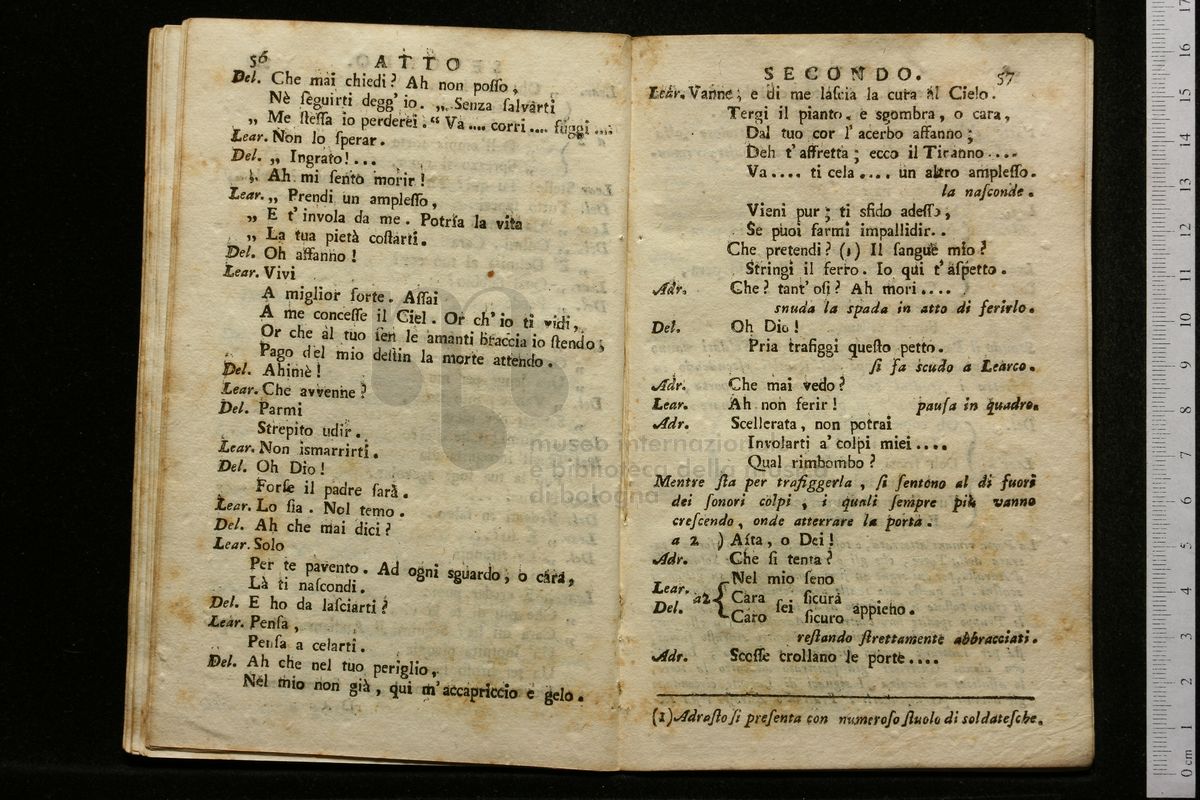 56 ATTO
Del. Che mai chiedi? Ah non poſſo,
Nè ſeguirti degg' io. „ Senza ſalvarti
„ Me ſteſſa io perderei. “ Va .... corri .... fuggi ....
Lear. Non lo ſperar.
Del. „ Ingrato! ...
„ Ah mi ſento morir!
Lear. „ Prendi un ampleſſo,
„ E t' invola da me. Potrìa la vita
„ La tua pietà coſtarti.
Del. Oh affanno!
Lear. Vivi
A miglior ſorte. Aſſai
A me conceſſe il Ciel. Or ch' io ti vidi,
Or che al tuo ſen le amanti braccia io ſtendo;
Pago del mio deſtin la morte attendo.
Del. Ahimè!
Lear. Che avvenne?
Del. Parmi
Strepito udir.
Lear. Non iſmarrirti.
Del. Oh Dio!
Forſe il padre ſarà.
Lear. Lo ſia. Nol temo.
Del. Ah che mai dici?
Lear. Solo
Per te pavento. Ad ogni sguardo, o cara,
Là ti naſcondi.
Del. E ho da laſciarti?
Lear. Penſa,
Penſa a celarti.
Del. Ah che nel tuo periglio,
Nel mio non già, qui m' accapriccio e gelo.
SECONDO. 57
Lear. Vanne; e di me laſcia la cura al Cielo.
Tergi il pianto, e sgombra, o cara,
Dal tuo cor l' acerbo affanno;
Deh t' affretta; ecco il Tiranno ....
Va .... ti cela .... un altro ampleſſo.
la naſconde.
Vieni pur; ti sfido adeſſo,
Se puoi farmi impallidir..
Che pretendi? (1) Il ſangue mio?
Stringi il ferro. Io qui t' aſpetto.
Adr. Che? tant' oſi? Ah mori ....
snuda la spada in atto di ferirlo.
Del. Oh Dio!
Pria trafiggi queſto petto.
ſi fa scudo a Learco.
Adr. Che mai vedo?
Lear. Ah non ferir! pauſa in quadro.
Adr. Scellerata, non potrai
Involarti a' colpi miei ....
Qual rimbombo?
Mentre ſta per trafiggerla, ſi ſentono al di fuori
dei ſonori colpi, i quali ſempre più vanno
creſcendo, onde atterrare la porta.
a 2 ) Aita, o Dei!
Adr. Che ſi tenta?
Lear. Del. a2 { Nel mio ſeno
Cara ſei ſicura appieno.
Caro ſicuro
reſtando ſtrettamente abbracciati.
Adr. Scoſſe crollano le porte ....
(1) Adraſto ſi preſenta con numeroſo ſtuolo di soldateſche.
museo internazionale
e biblioteca della musica
di bologna
0 cm 1 2 3 4 5 6 7 8 9 10 11 12 13 14 15 16 17